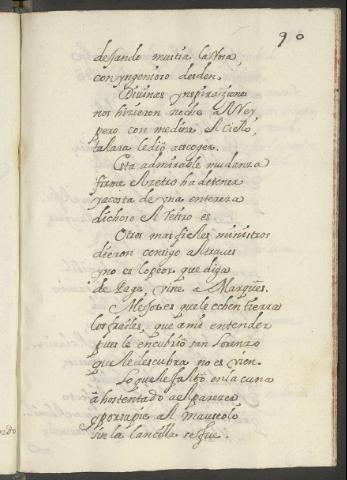 90
dejando mustia la Rosa
con yngenioso desden.
Divinas ynspiraciones
nos hizieron noche al Rey
pero con medina el cielo,
la lara le dio a escoger.
Esta admirable mudanza
firme el Retiro ha de tener
y a costa de una entereza
dichoso el Retiro es.
Otros mas fieles ministros
dieron contigo al traves
y no es lo peor que diga
de Paga, vine a Marques.
Mejor es que le echen tierra
los frailes, que a mi entender
pues le encubrio san Lorenzo
que le descubra no es vien.
Lo que le faltò en la cuna
à hostentado a el parecer
y por su pie al mauseolo
sin la se fue.